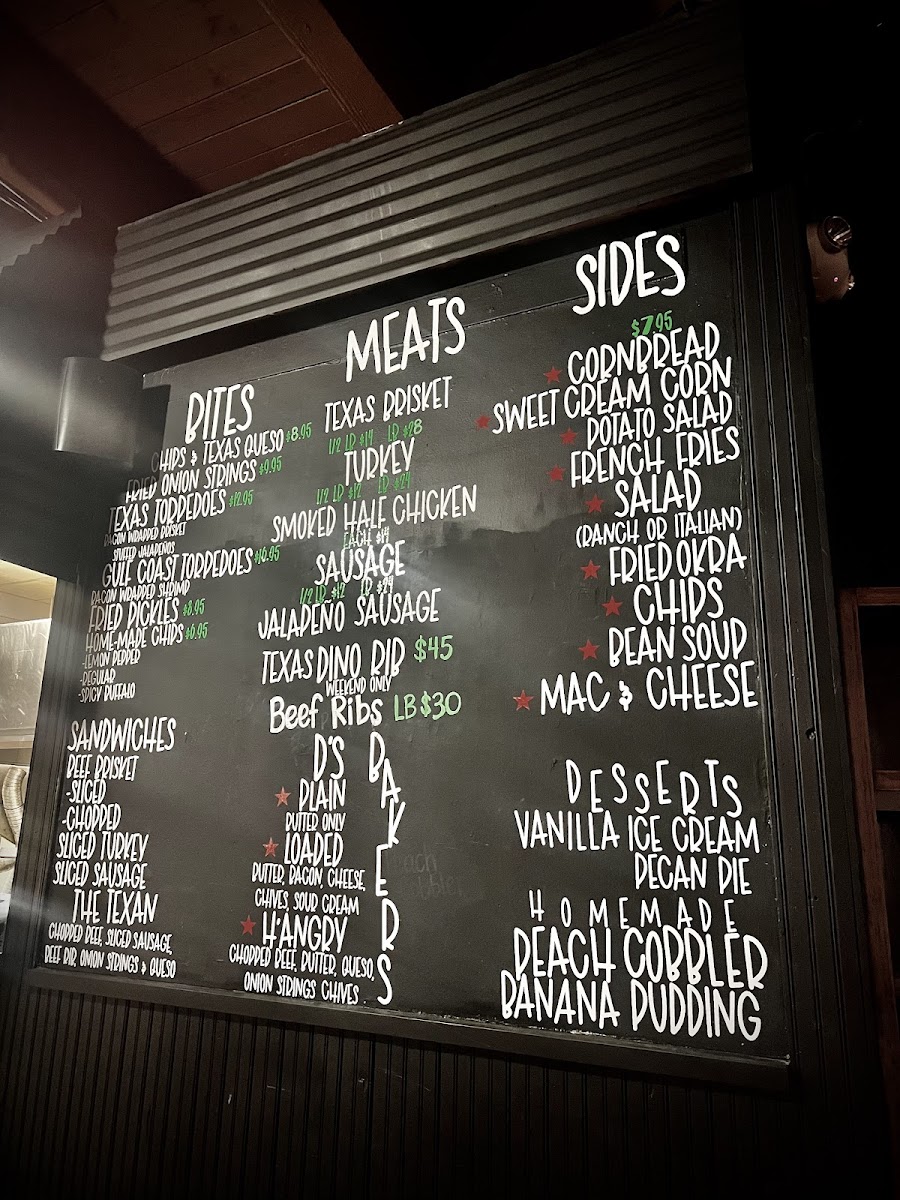 BITES
CHIPS & TEXAS QUESO $8.95
FRIED ONION STRINGS $9.95
TEXAS TORPEDOES $12.95
BACON WRAPPED BRISKET
STUFFED JALAPEÑOS
GULF COAST TORPEDOES $16.95
BACON WRAPPED SHRIMP
FRIED PICKLES $8.95
HOME-MADE CHIPS $6.95
-LEMON PEPPER
-REGULAR
-SPICY BUFFALO
SANDWICHES
BEEF BRISKET
-SLICED
-CHOPPED
SLICED TURKEY
SLICED SAUSAGE
THE TEXAN
CHOPPED BEEF, SLICED SAUSAGE,
BEEF RIB, ONION STRINGS & QUESO
MEATS
TEXAS BRISKET
1/2 LB $14 LB $28
TURKEY
1/2 LB $12 LB $24
SMOKED HALF CHICKEN
EACH $14
SAUSAGE
1/2 LB $12 LB $24
JALAPEÑO SAUSAGE
TEXAS DINO RIB $45
WEEKEND ONLY
Beef Ribs LB $30
D'S BAKERS
PLAIN
BUTTER ONLY
LOADED
BUTTER, BACON, CHEESE,
CHIVES, SOUR CREAM
H'ANGRY
CHOPPED BEEF, BUTTER, QUESO,
ONION STRINGS CHIVES
SIDES
$7.95
CORNBREAD
SWEET CREAM CORN
POTATO SALAD
FRENCH FRIES
SALAD
(RANCH OR ITALIAN)
FRIED OKRA
CHIPS
BEAN SOUP
MAC & CHEESE
DESSERTS
VANILLA ICE CREAM
PECAN PIE
HOMEMADE
PEACH COBBLER
BANANA PUDDING